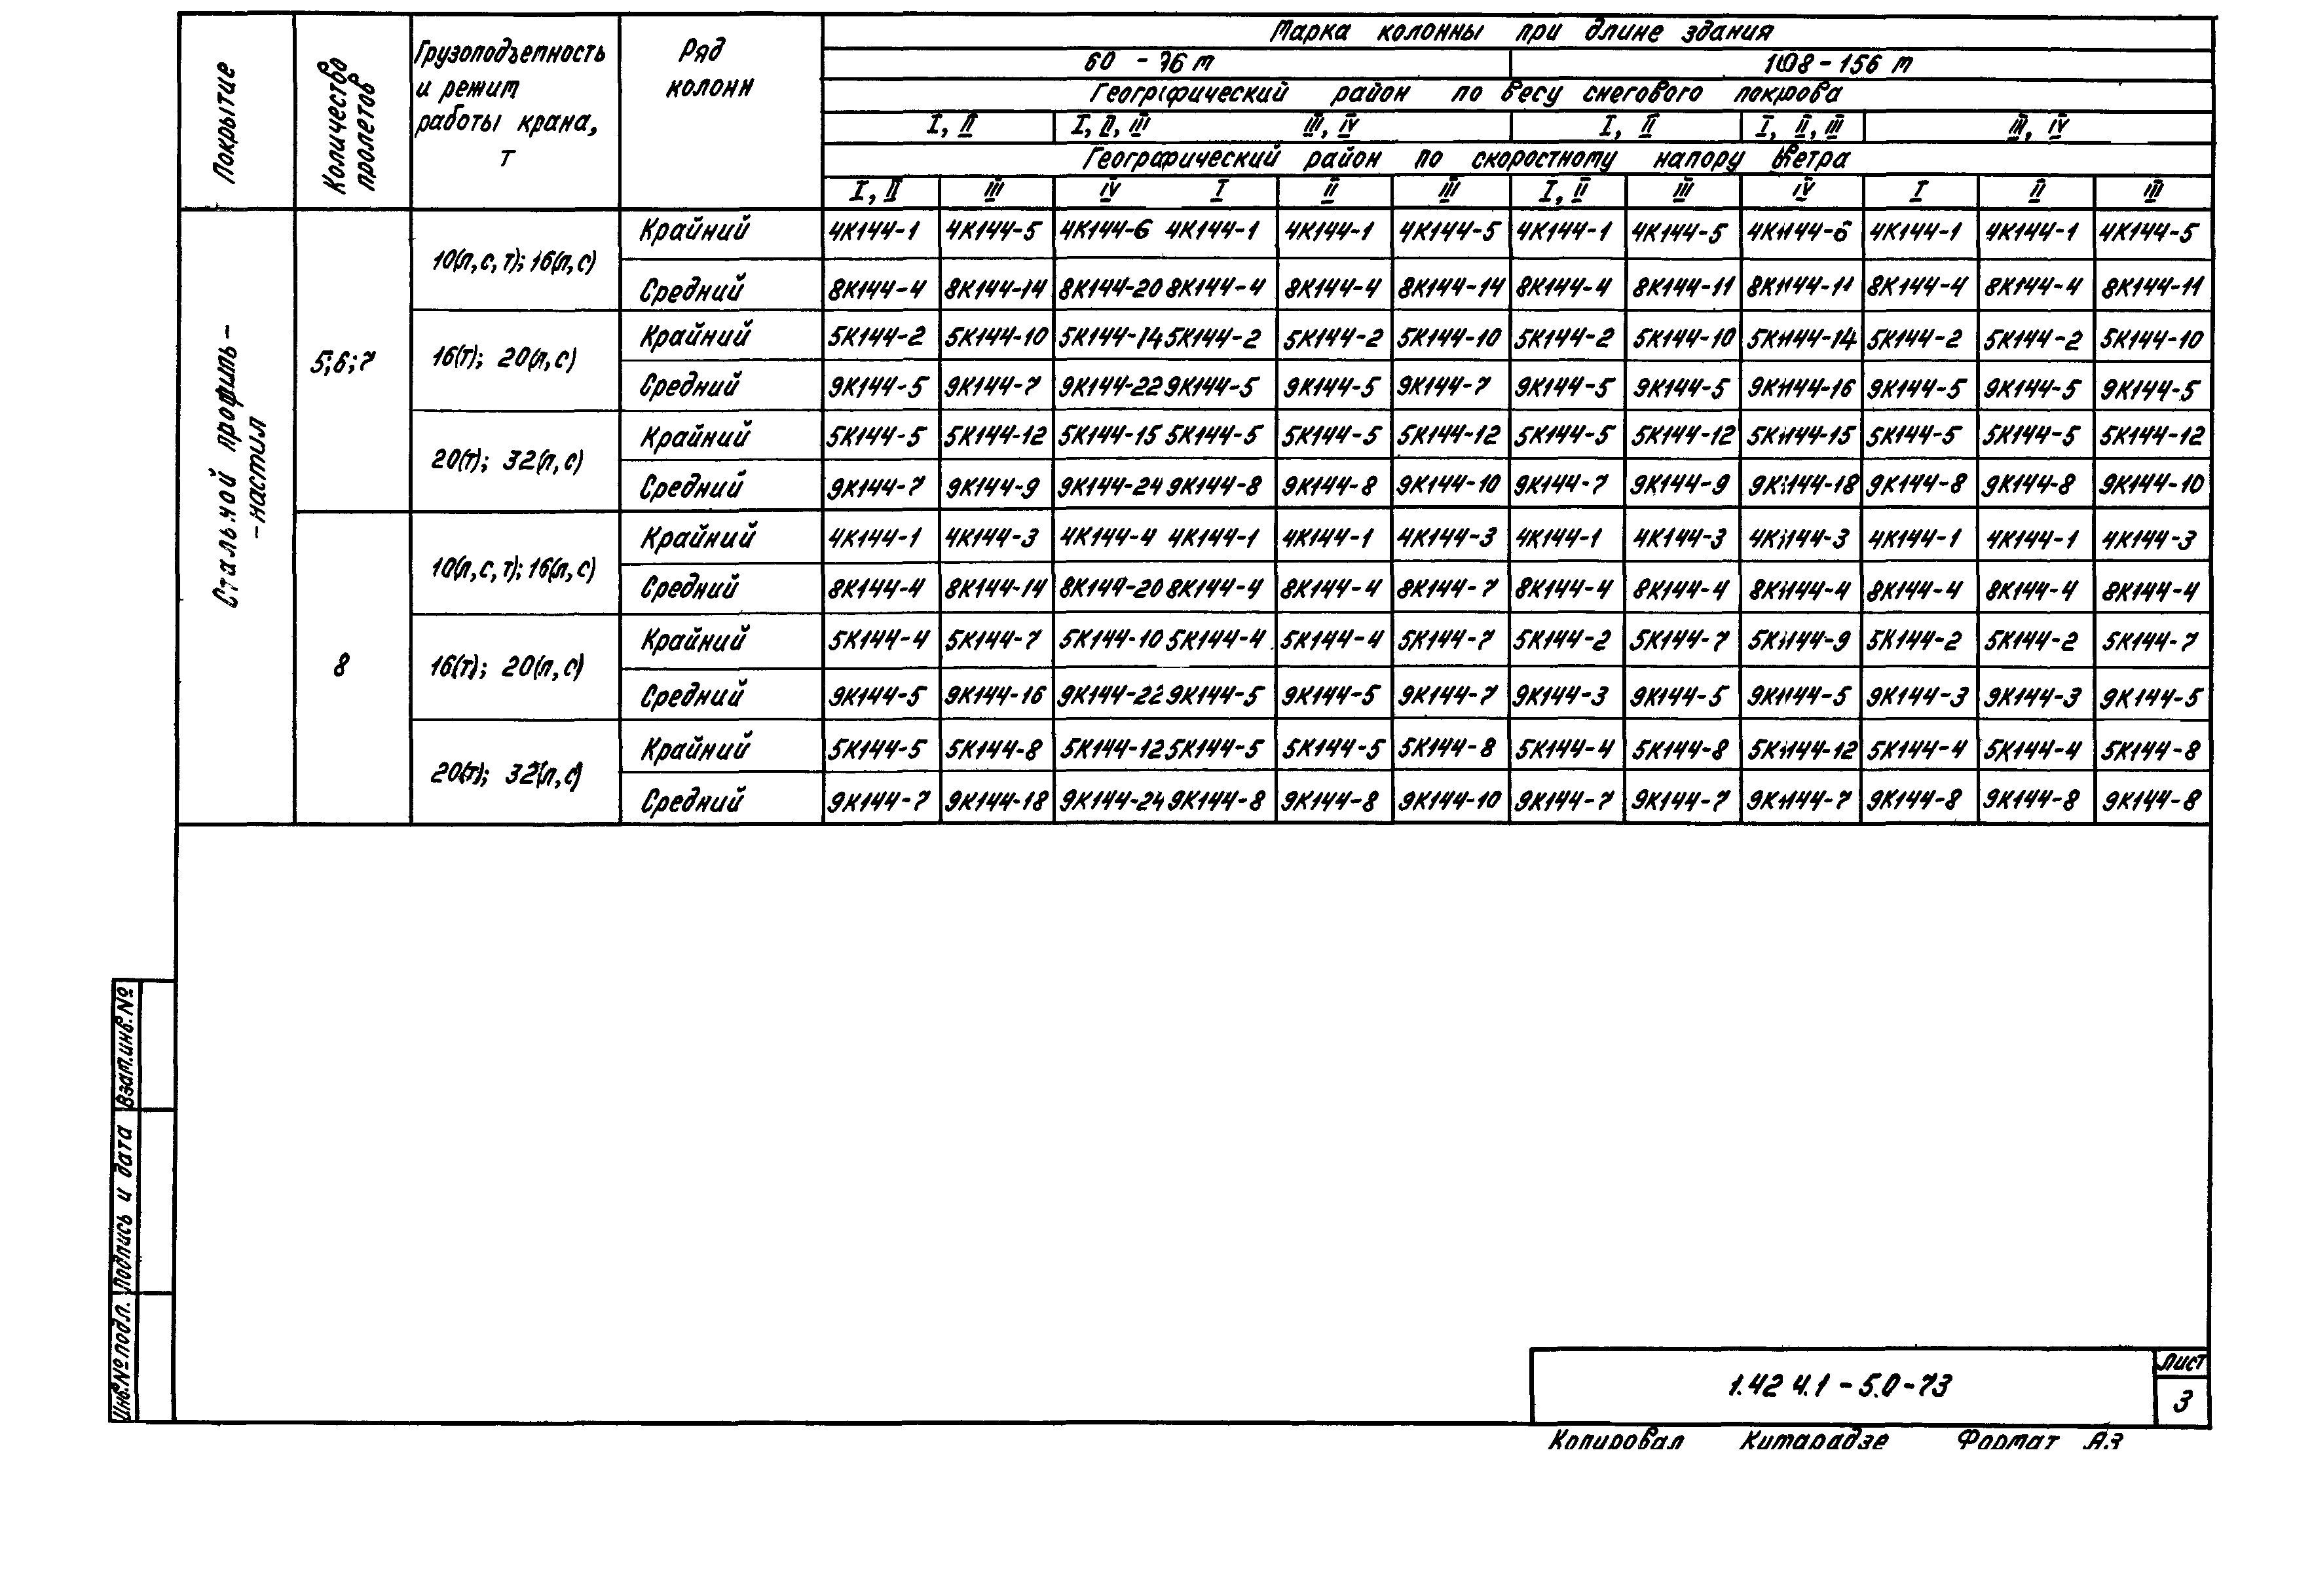 Покрытие
Количество пролетов
Грузоподъемность и режим работы крана, т
Ряд колонн
Марка колонны при длине здания
60 - 96 м
108 - 156 м
Географический район по весу снегового покрова
I, II
I, II, III
III, IV
I, II
I, II, III
III, IV
Географический район по скоростному напору ветра
I, II III IV I II III I, II III IV I II III
Стальной профиль-
-настил
5;6;7
10(л,с,т); 16(л,с)
Крайний 4К144-1 4К144-5 4К144-6 4К144-1 4К144-1 4К144-5 4К144-1 4К144-5 4К144-6 4К144-1 4К144-1 4К144-5
Средний 8К144-4 8К144-14 8К144-20 8К144-4 8К144-4 8К144-14 8К144-4 8К144-11 8К144-11 8К144-4 8К144-4 8К144-11
16(т); 20(л,с)
Крайний 5К144-2 5К144-10 5К144-14 5К144-2 5К144-2 5К144-10 5К144-2 5К144-10 5К144-14 5К144-2 5К144-2 5К144-10
Средний 9К144-5 9К144-7 9К144-22 9К144-5 9К144-5 9К144-7 9К144-5 9К144-5 9К144-16 9К144-5 9К144-5 9К144-5
20(т); 32(л,с)
Крайний 5К144-5 5К144-12 5К144-15 5К144-5 5К144-5 5К144-12 5К144-5 5К144-12 5К144-15 5К144-5 5К144-5 5К144-12
Средний 9К144-7 9К144-9 9К144-24 9К144-8 9К144-8 9К144-10 9К144-7 9К144-9 9К144-18 9К144-8 9К144-8 9К144-10
8
10(л,с,т); 16(л,с)
Крайний 4К144-1 4К144-3 4К144-4 4К144-1 4К144-1 4К144-3 4К144-1 4К144-3 4К144-3 4К144-1 4К144-1 4К144-3
Средний 8К144-4 8К144-14 8К144-20 8К144-4 8К144-4 8К144-7 8К144-4 8К144-4 8К144-4 8К144-4 8К144-4 8К144-4
16(т); 20(л,с)
Крайний 5К144-4 5К144-7 5К144-10 5К144-4 5К144-4 5К144-7 5К144-2 5К144-7 5К144-9 5К144-2 5К144-2 5К144-7
Средний 9К144-5 9К144-16 9К144-22 9К144-5 9К144-5 9К144-7 9К144-3 9К144-5 9К144-5 9К144-3 9К144-3 9К144-5
20(т); 32(л,с)
Крайний 5К144-5 5К144-8 5К144-12 5К144-5 5К144-5 5К144-8 5К144-4 5К144-8 5К144-12 5К144-4 5К144-4 5К144-8
Средний 9К144-7 9К144-18 9К144-24 9К144-8 9К144-8 9К144-10 9К144-7 9К144-7 9К144-7 9К144-8 9К144-8 9К144-8
Взам.инв.№
Подпись и дата
Инв.№ подл.
1.424.1 - 5.0 - 73
Лист
3
Копировал Китарадзе Формат А3